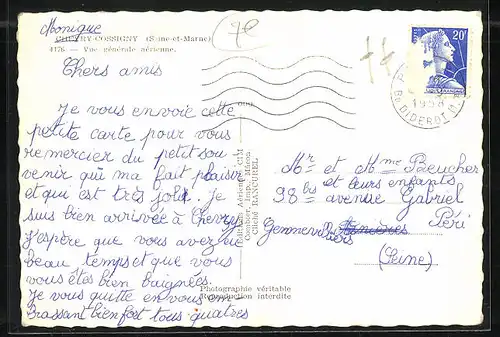 Monique
CHEVRY-COSSIGNY (Seine-et-Marne)
4176 - Vue générale aérienne.
Chers amis
Je vous envoie cette
petite carte pour vous
remercier du petit sou
venir qui ma fait plaisir
et qui est très joli. Je
suis bien arrivée à Chevry
j'espère que vous avez eu
beau temps et que vous
vous êtes bien baignées.
Je vous quitte en vous em-
brassant bien fort tous quatres
Photographie véritable
Reproduction interdite
Editions Aériennes CIM
Combier, Imp. Mâcon
Cliché RANCUREL
20F
1958
Bd DIDEROT
Mr et Mme
et leurs enfants
98 bis avenue Gabriel
Péri
Gennevilliers Asnières
(Seine)